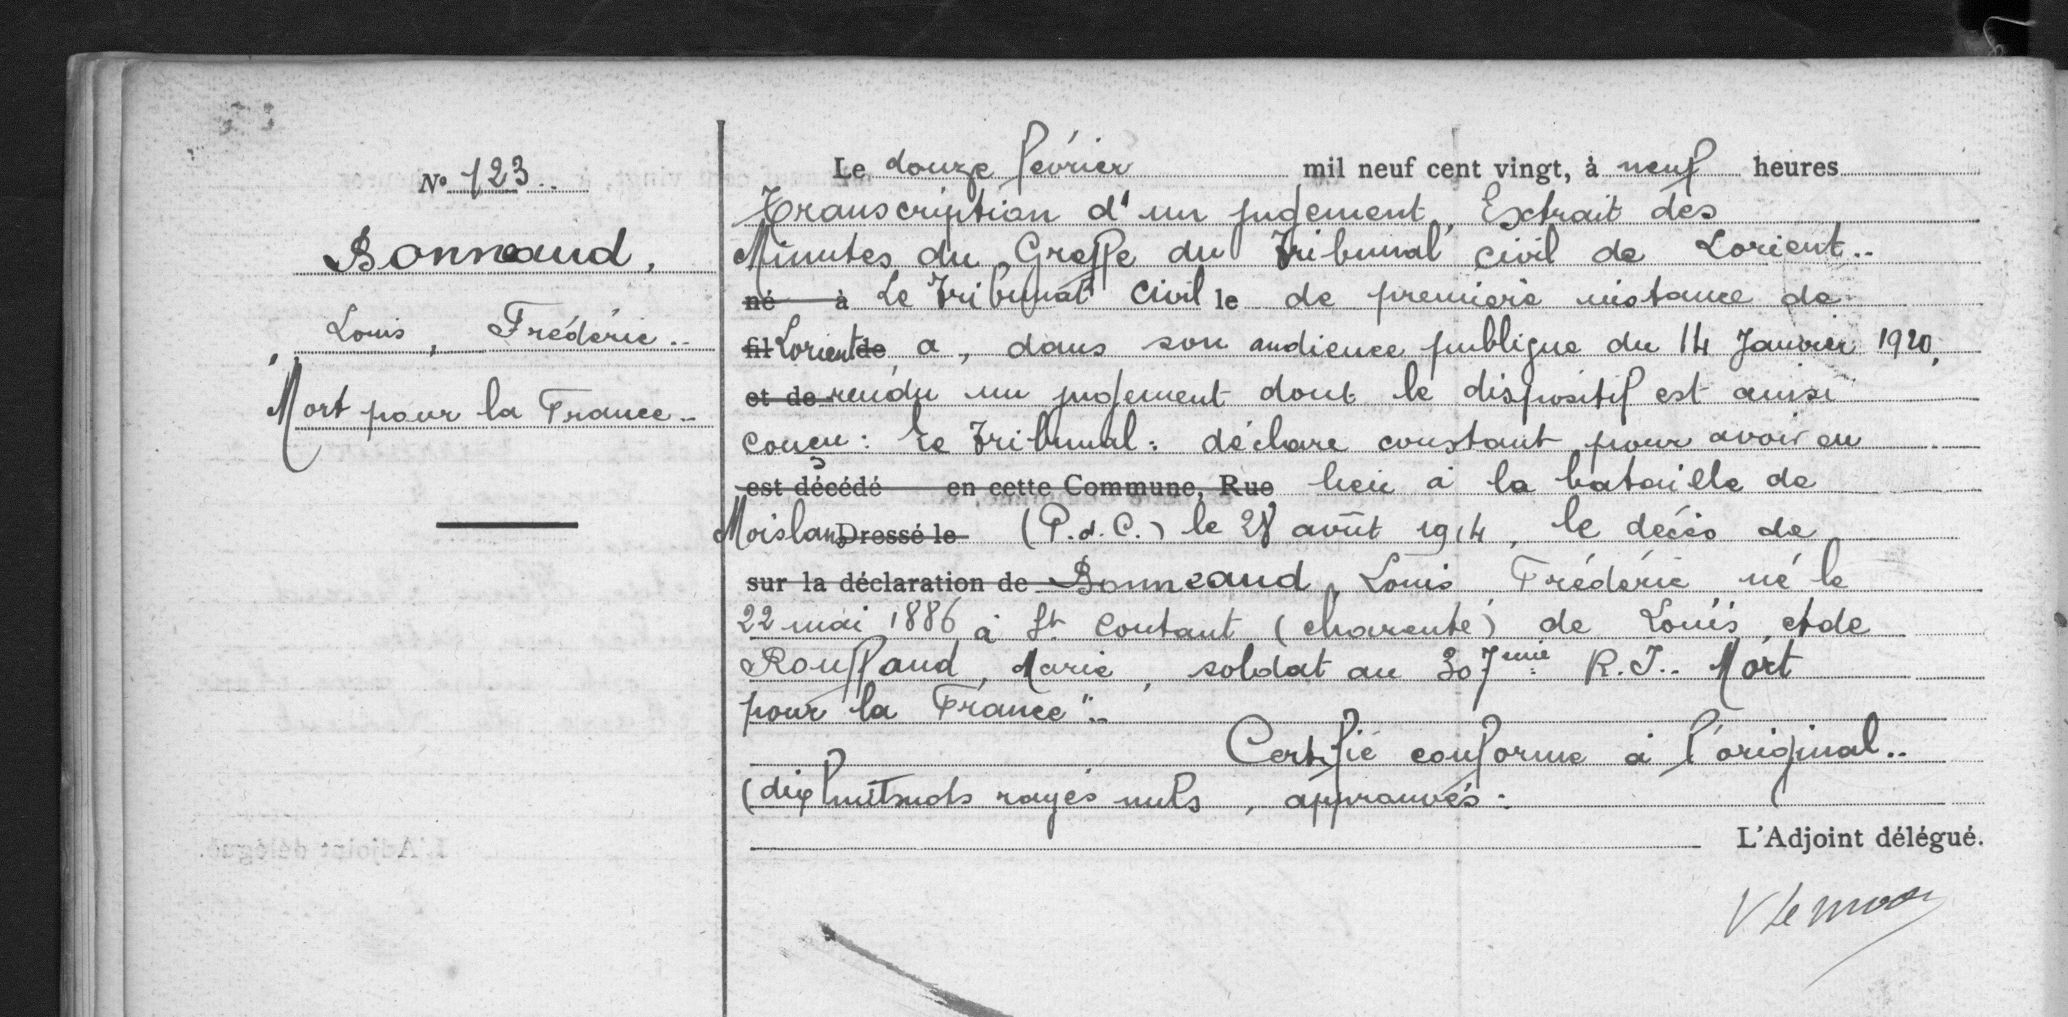 Nº 123..
Bonneaud,
Louis, Frédéric..
Mort pour la France..
Le douze février mil neuf cent vingt, à neuf heures
Transcription d'un jugement, Extrait des
Minutes du Greffe du Tribunal civil de Lorient..
né à Le Tribunal civil le de première instance de
fil Lorient de a, dans son audience publique du 14 Janvier 1920,
et de rendu un jugement dont le dispositif est ainsi
conçu: Le Tribunal: déclare constant pour avoir eu
est décédé en cette Commune, Rue lieu à la bataille de
Moislans Dressé le (P.d.C.) le 28 août 1914, le décès de
sur la déclaration de Bonneaud, Louis Frédéric né le
22 mai 1886 à St Coutant (charente) de Louis et de
Rouffaud, Marie, soldat au 307eme R.I.. Mort
pour la France"..
Certifié conforme à l'original..
(dix huit mots rayés nuls, approuvés.
L'Adjoint délégué.